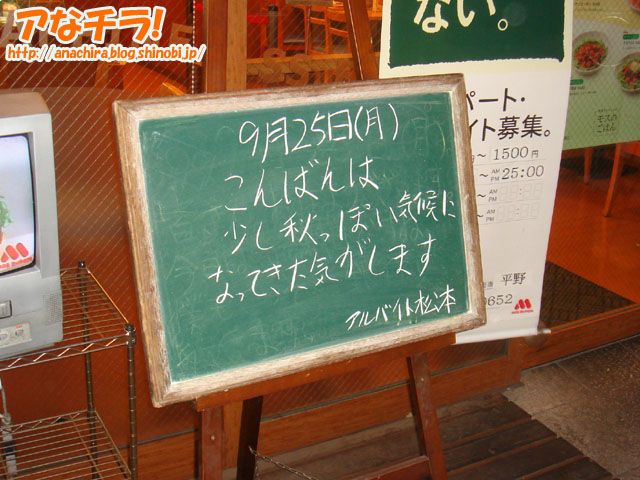 アなチラ!
http://anachira.blog.shinobi.jp/
9月25日(月)
こんばんは
少し秋っぽい気候に
なってきた気がします
アルバイト松本
ない。
パート・
イト募集。
~ 1500円
~ AM PM 25:00
~ AM PM
~ AM PM
平野
0652
モスの
ごはん